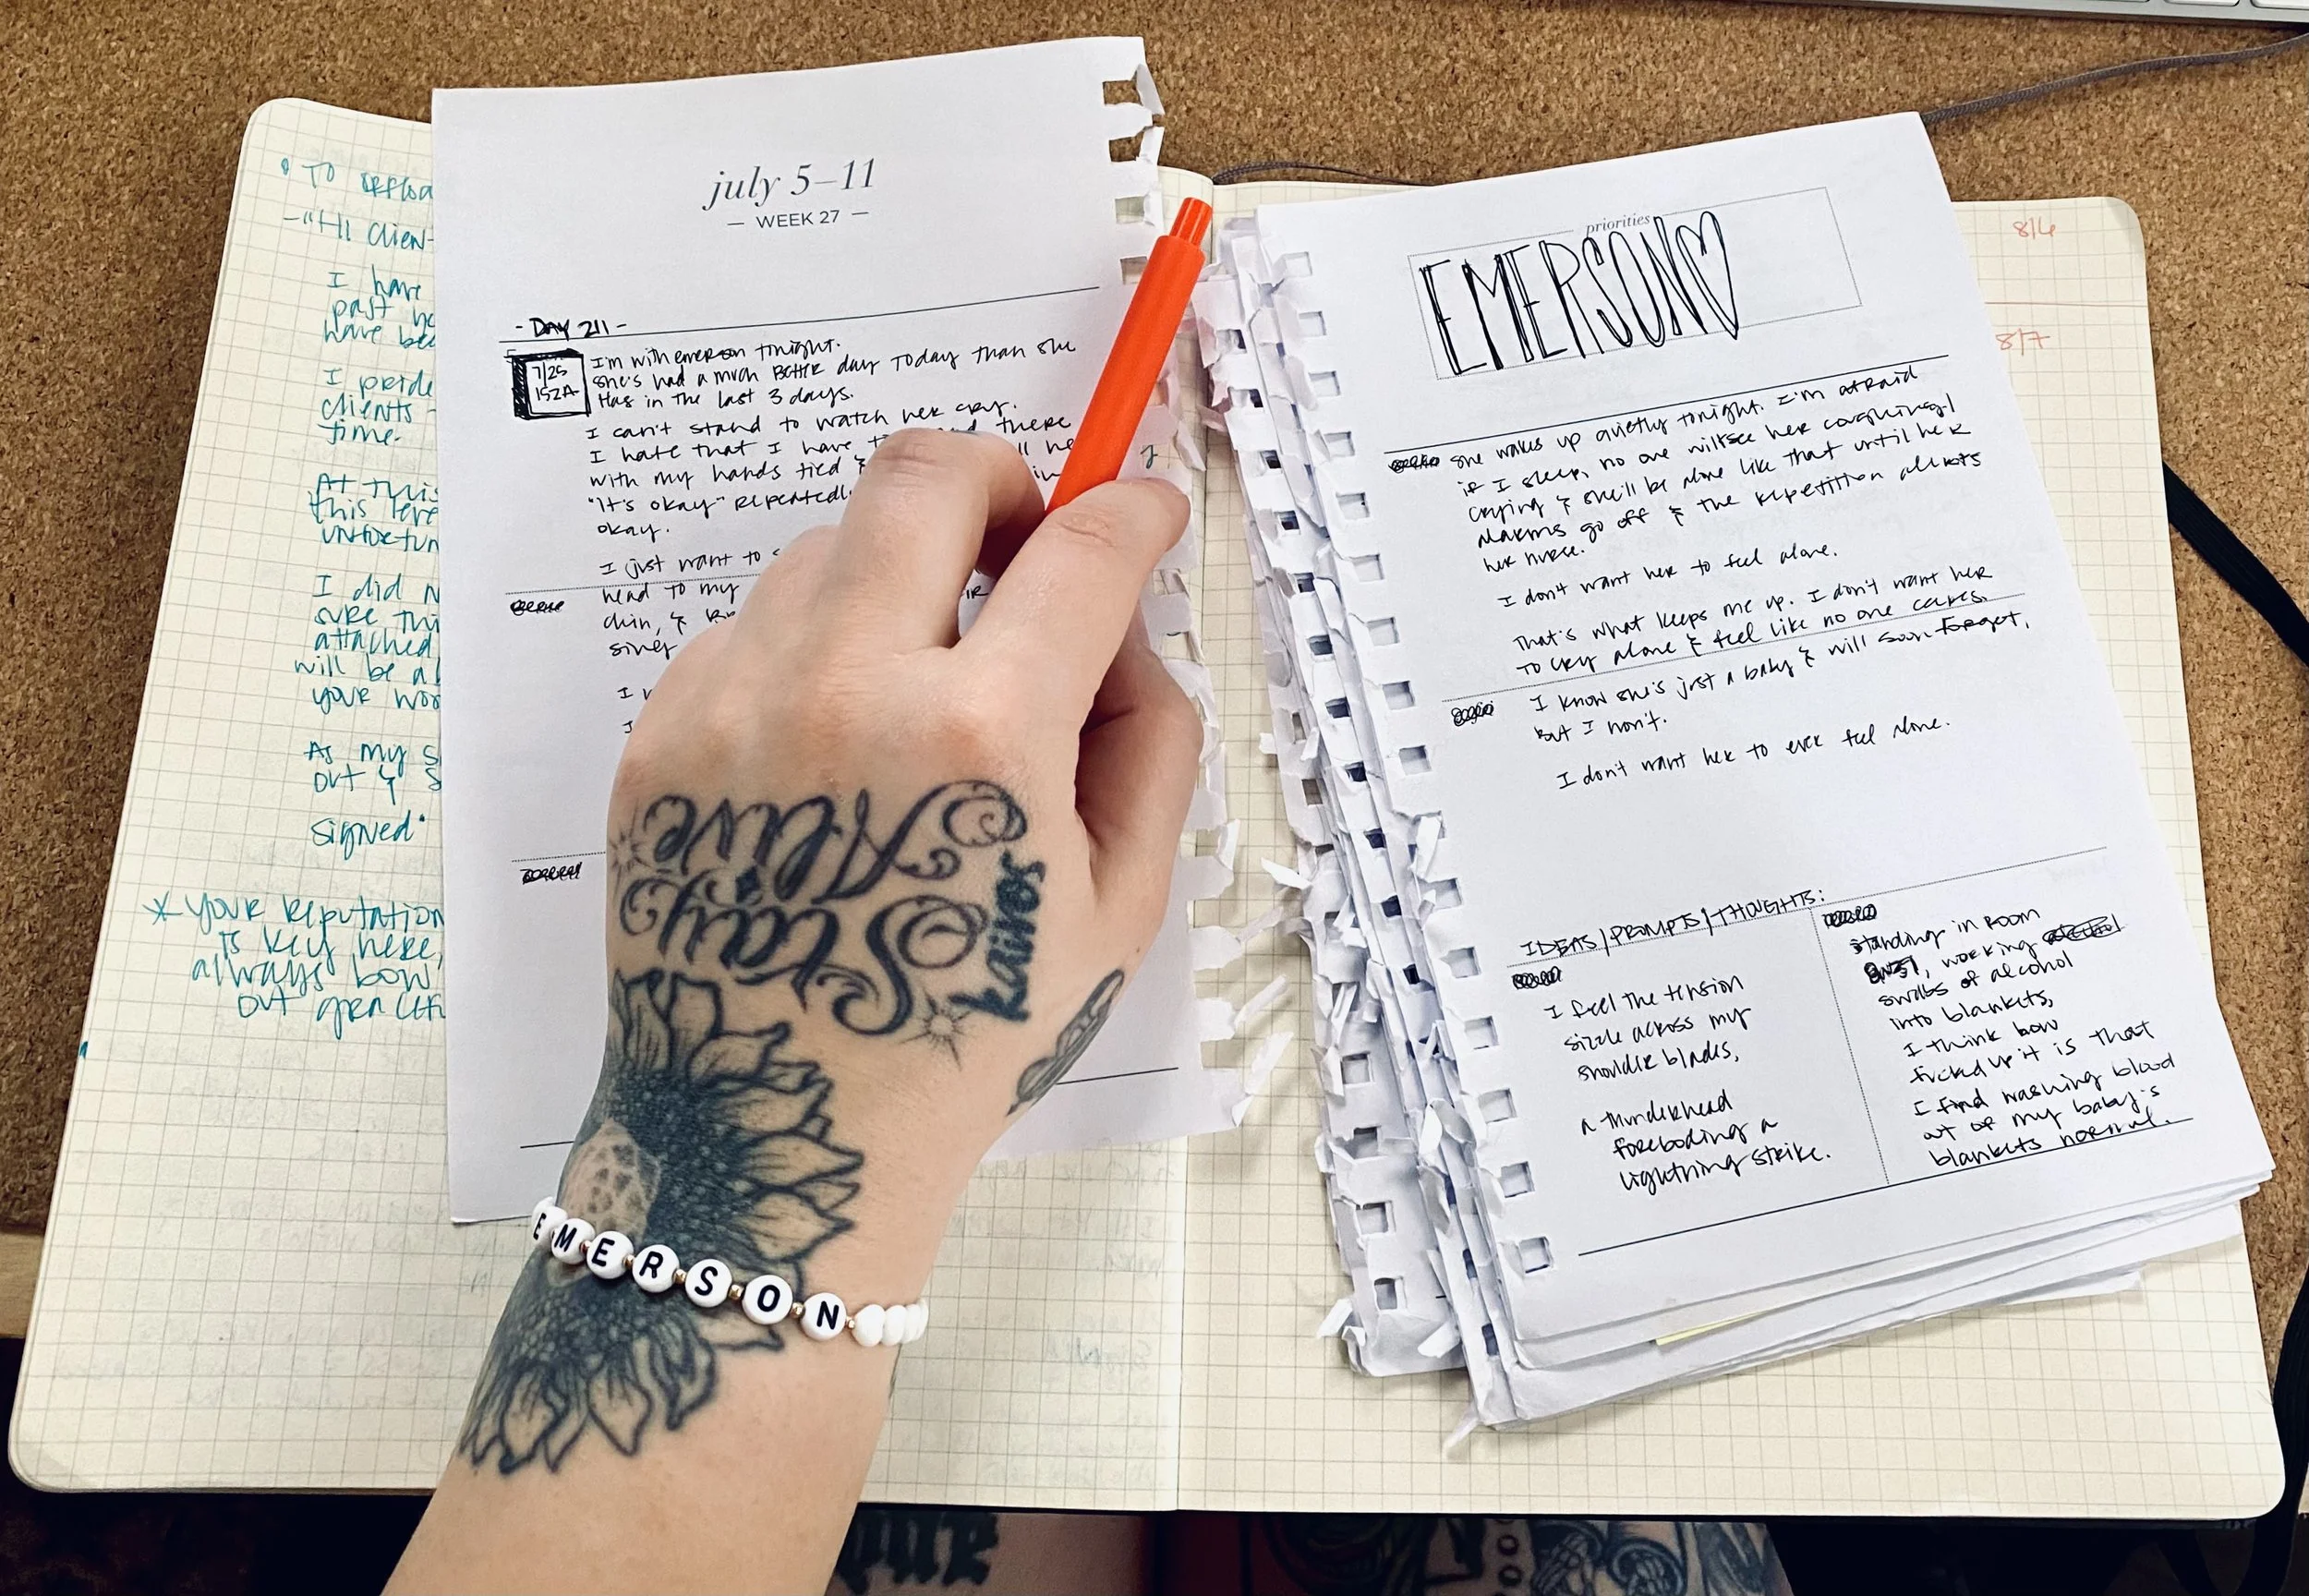 • TO
- "Hi Clien
I have
past
have bee
I pride
clients
time.
At this
this leve
unfortun
I did n
sure thi
attached
will be a
your wor
As my s
out & s
signed"
* Your reputation
is key here,
always bow
out
july 5–11
— WEEK 27 —
- DAY 211 -
7/25
152A
I'm with emerson tonight.
She's had a much BETTER day today than she
has in the last 3 days.
I can't stand to watch her cry.
I hate that I have there
with my hands tied &
"it's okay" repeatedl
okay.
I just want to
head to my
chin, &
I
8/6
8/7
priorities
EMERSON♡
she wakes up quietly tonight. I'm afraid
if I sleep, no one will see her coughing/
crying & she'll be alone like that until her
alarms go off & the repetition alerts
her nurse.
I don't want her to feel alone.
That's what keeps me up. I don't want her
to cry alone & feel like no one cares.
I know she's just a baby & will soon forget,
but I won't.
I don't want her to ever feel alone.
IDEAS/PROMPTS/THOUGHTS:
I feel the tension
sizzle across my
shoulder blades,
a thunderhead
foreboding a
lightning strike.
standing in room
working
swabs of alcohol
into blankets,
I think how
fucked up it is that
I find washing blood
out of my baby's
blankets normal.
Stay
Alive
kairos
EMERSON